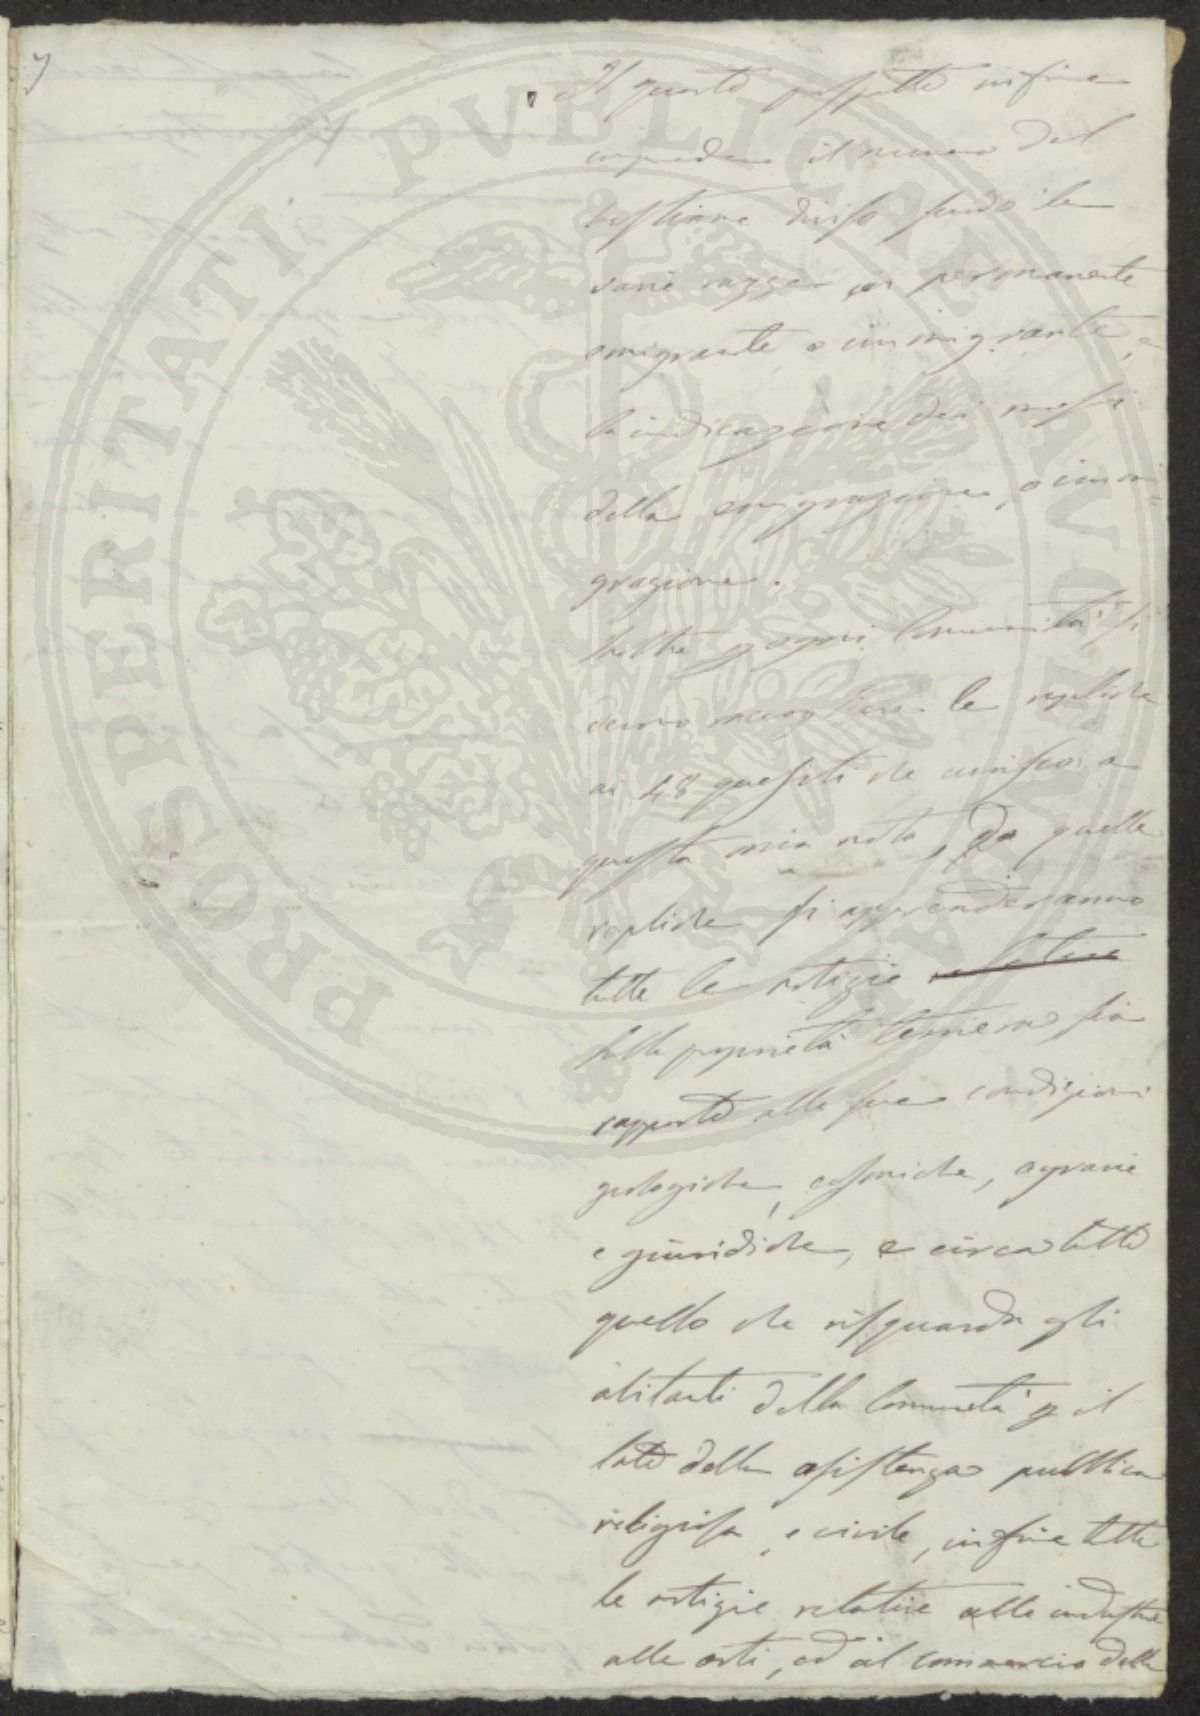 Il quarto prospetto infine
comprende il numero del
bestiame diviso secondo le
varie razze in permanente
emigrante e immigrante, e
la indicazione dei mesi
della emigrazione, o immi-
grazione.
Inoltre p ogni Comunità si
devono raccogliere le repliche
ai 48 quesiti che unisco a
questa mia nota, da quelle
repliche si apprenderanno
tutte le notizie relative
sulla proprietà terriera sia
rapporto alle sue condizioni
geologiche, cosmiche, agrarie
e giuridiche, e circa tutto
quello che risguarda gli
abitanti della Comunità p il
lato della assistenza pubblica
religiosa, e civile, infine tutte
le notizie relative alle industrie
alle arti, ed al commercio della
PROSPERITATI PVBLICAE AVGENDAE